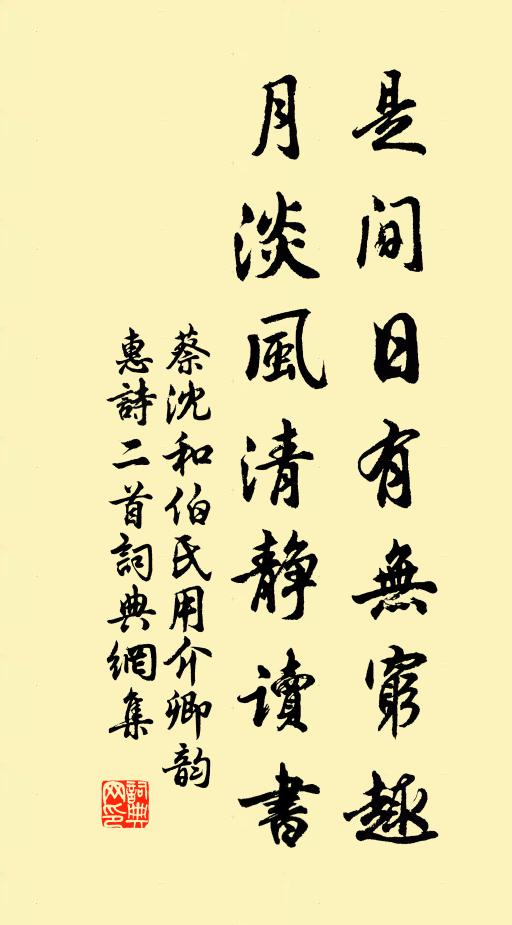 是间日有無窮趣
月淡風清静讀書
蔡沈和伯氏用介卿韵
惠詩二首詞典網集
詞典
网印